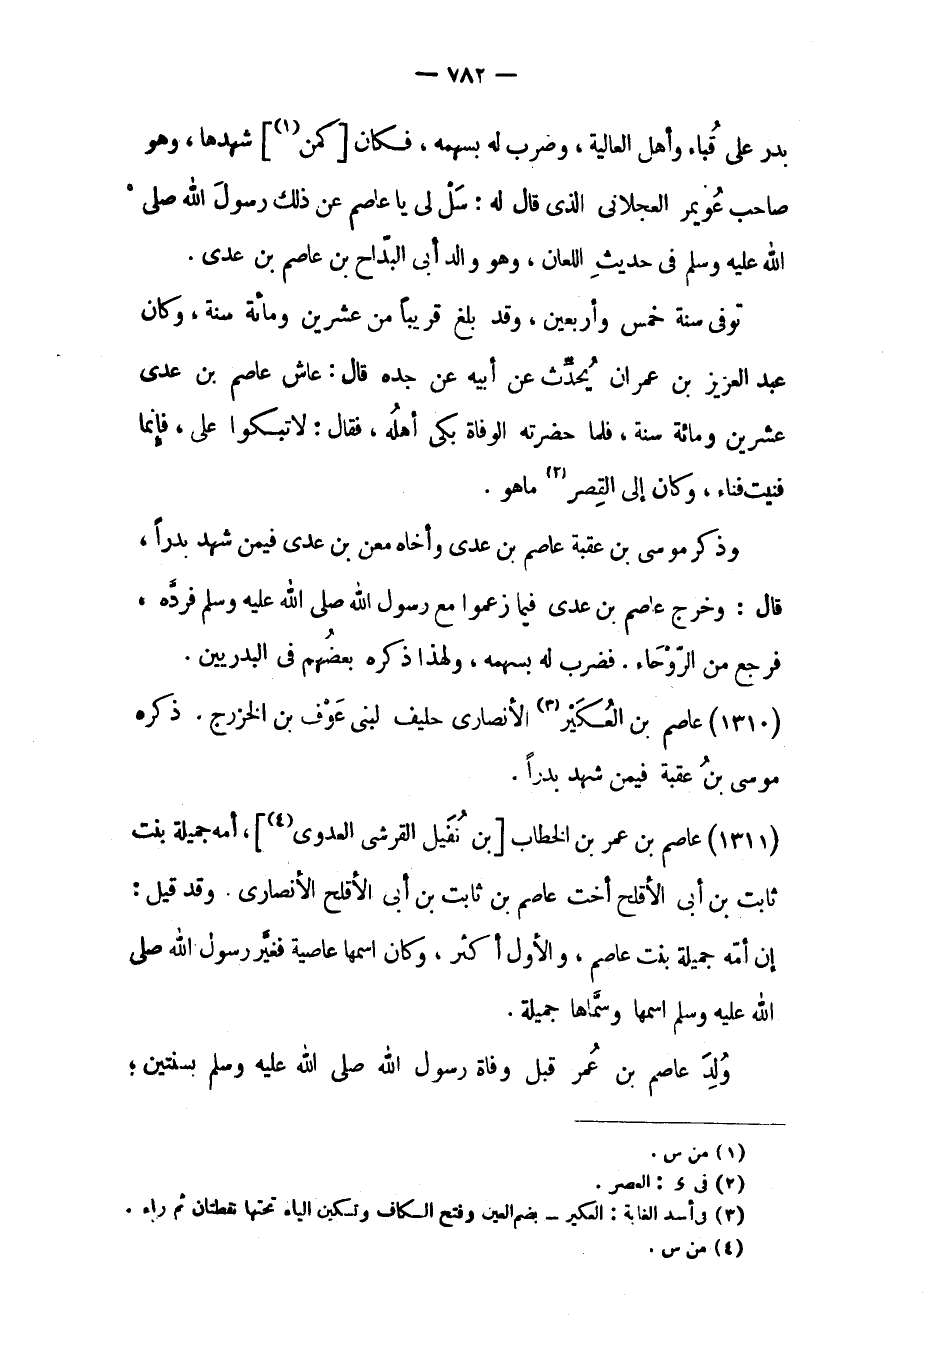 — ٧٨٢ —
بدر على قُباء وأهل العالية ، وضرب له بسهمه ، فكان [ كمن (١) ] شهدها ، وهو
صاحب عُوَيمر العجلانى الذى قال له : سَلْ لى يا عاصم عن ذلك رسولَ الله صلى
الله عليه وسلم فى حديثِ اللعان ، وهو والد أبى البدّاح بن عاصم بن عدى .
توفى سنة خمس وأربعين ، وقد بلغ قريباً من عشرين ومائة سنة ، وكان
عبد العزيز بن عمران يُحدِّث عن أبيه عن جده قال : عاش عاصم بن عدى
عشرين ومائة سنة ، فلما حضرته الوفاة بكى أهلُه ، فقال : لا تبكوا على ، فإنما
فنيت فناء ، وكان إلى القِصر (٢) ماهو .
وذكر موسى بن عقبة عاصم بن عدى وأخاه معن بن عدى فيمن شهد بدراً ،
قال : وخرج عاصم بن عدى فيما زعموا مع رسول الله صلى الله عليه وسلم فردَّه ،
فرجع من الرَّوْحَاء . فضرب له بسهمه ، ولهذا ذكره بعضُهم فى البدريين .
(١٣١٠) عاصم بن العُكَيْر (٣) الأنصارى حليف لبنى عَوْف بن الخزرج . ذكره
موسى بنُ عقبة فيمن شهد بدراً .
(١٣١١) عاصم بن عمر بن الخطاب [ بن نُفَيل القرشى العدوى (٤) ] ، أمه جميلة بنت
ثابت بن أبى الأقلح أخت عاصم بن ثابت بن أبى الأقلح الأنصارى . وقد قيل :
إن أمّه جميلة بنت عاصم ، والأول أكثر ، وكان اسمها عاصية فغيَّر رسول الله صلى
الله عليه وسلم اسمها وسمَّاها جميلة .
وُلِدَ عاصم بن عُمر قبل وفاة رسول الله صلى الله عليه وسلم بسنتين ؛
(١) من س .
(٢) فى ى : العصر .
(٣) فى أسد الغابة : العكير — بضم العين وفتح الكاف وتسكين الياء تحتها نقطتان ثم راء .
(٤) من س .